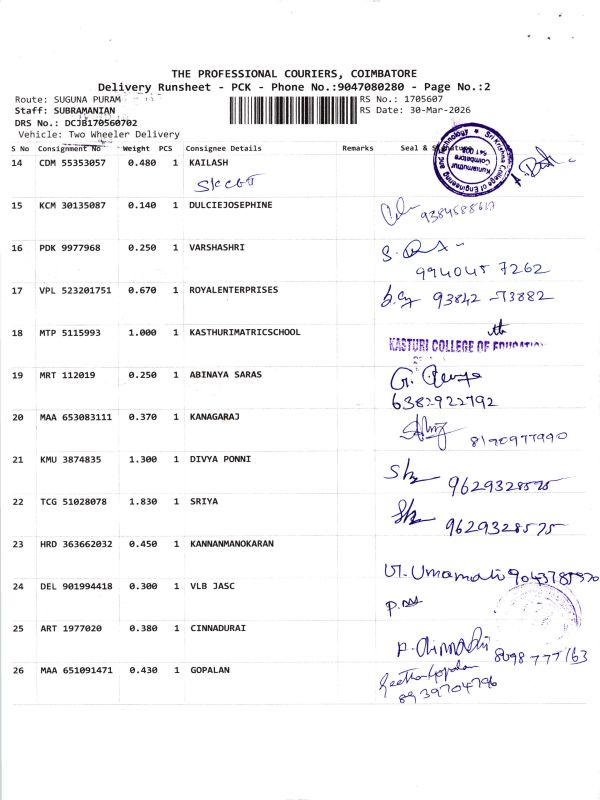 THE PROFESSIONAL COURIERS, COIMBATORE
Delivery Runsheet - PCK - Phone No.:9047080280 - Page No.:2
Route: SUGUNA PURAM
RS No.: 1705607
Staff: SUBRAMANIAN
RS Date: 30-Mar-2026
DRS No.: DCJB170560702
Vehicle: Two Wheeler Delivery
S No Consignment No Weight PCS Consignee Details Remarks Seal & Signature
14 CDM 55353057 0.480 1 KAILASH
SKCET
Sri Krishna College of Engineering and Technology
Kuniamuthur
Coimbatore
641 008
15 KCM 30135087 0.140 1 DULCIEJOSEPHINE
9384588617
16 PDK 9977968 0.250 1 VARSHASHRI
994045 7262
17 VPL 523201751 0.670 1 ROYALENTERPRISES
93842 -73882
18 MTP 5115993 1.000 1 KASTHURIMATRICSCHOOL
KASTURI COLLEGE OF EDUCATION
19 MRT 112019 0.250 1 ABINAYA SARAS
6382922792
20 MAA 653083111 0.370 1 KANAGARAJ
8190977990
21 KMU 3874835 1.300 1 DIVYA PONNI
9629328575
22 TCG 51028078 1.830 1 SRIYA
9629328575
23 HRD 363662032 0.450 1 KANNANMANOKARAN
24 DEL 901994418 0.300 1 VLB JASC
25 ART 1977020 0.380 1 CINNADURAI
8098 777163
26 MAA 651091471 0.430 1 GOPALAN
Geetha Gopalan
8939704796